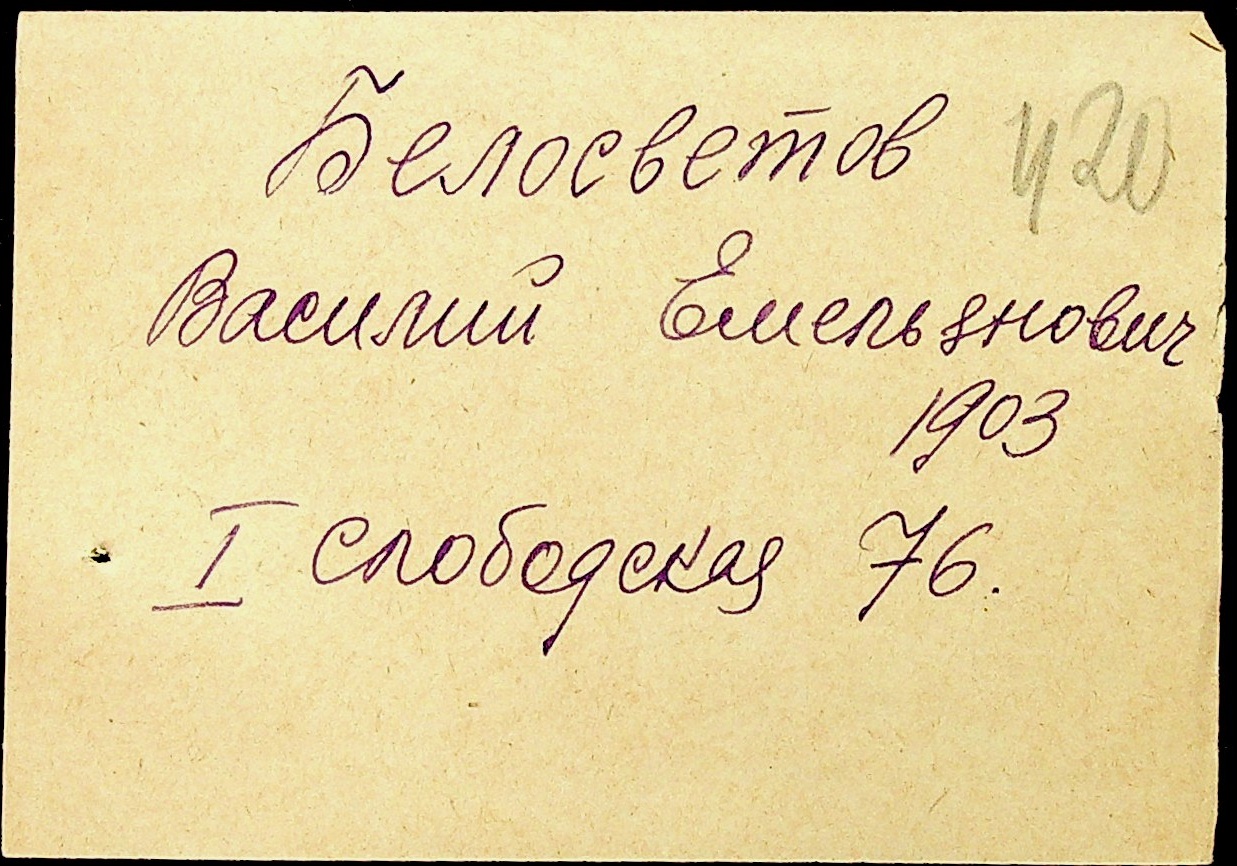 Белосветов 420
Василий Емельянович
1903
I Слободская 76.